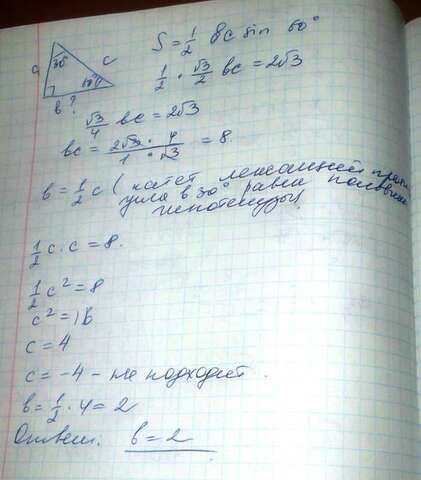 a 30° c 60°
b ?
S = 1/2 bc sin 60°
1/2 · √3/2 bc = 2√3
√3/4 bc = 2√3
bc = 2√3 · 4 / 1 · √3 = 8
b = 1/2 c (катет лежащий
угла в 30° равен половине
гипотенузы)
1/2 c · c = 8.
1/2 c² = 8
c² = 16
c = 4
c = -4 - не подходит.
b = 1/2 · 4 = 2
Ответ: b = 2